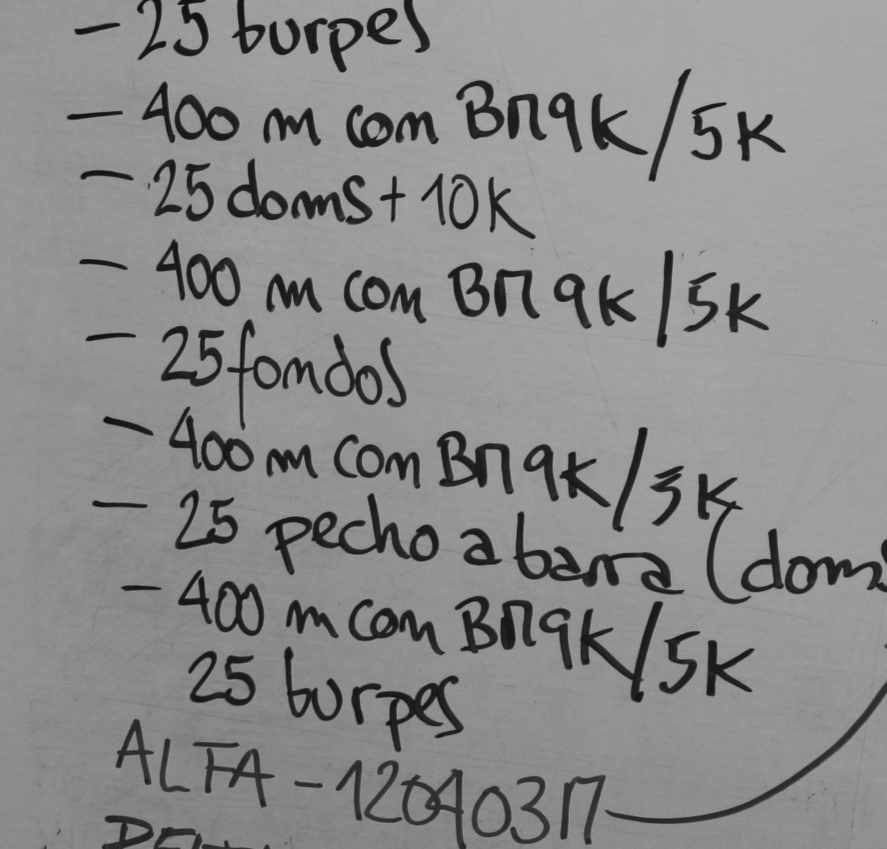 - 25 burpes
- 400 m com BM 9K/5K
- 25 doms + 10K
- 400 m com BM 9K/5K
- 25 fondos
- 400 m com BM 9K/5K
- 25 pecho a barra (doms
- 400 m com BM 9K/5K
25 burpes
ALFA -